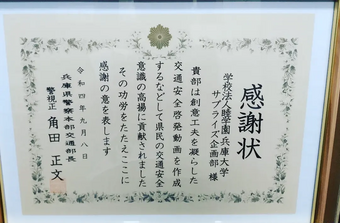 感謝状
学校法人睦学園兵庫大学
サプライズ企画部 様
貴部は創意工夫を凝らした
交通安全啓発動画を作成
するなどして県民の交通安全
意識の高揚に貢献されました
その功労をたたえここに
感謝の意を表します
令和四年九月八日
兵庫県警察本部交通部長
警視正 角田正文